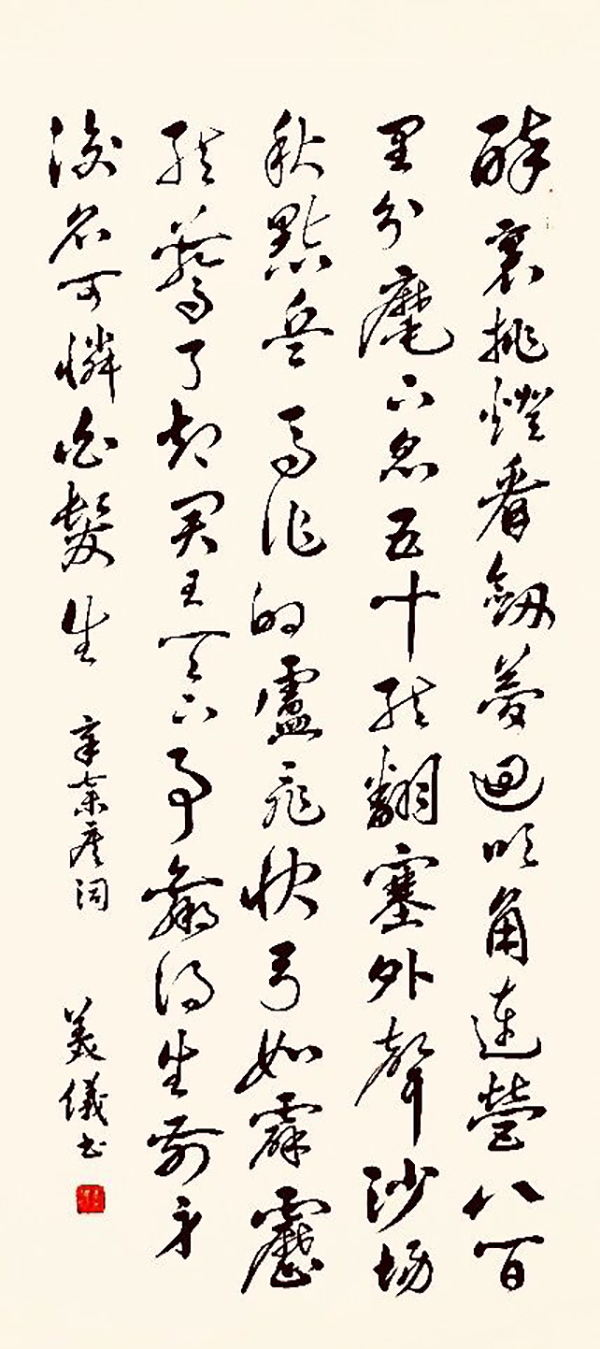 醉裏挑燈看劍夢迴吹角連營八百
里分麾下炙五十絃翻塞外聲沙場
秋點兵馬作的盧飛快弓如霹靂
絃驚了却君王天下事贏得生前身
後名可憐白髮生 辛棄疾詞 美儀书